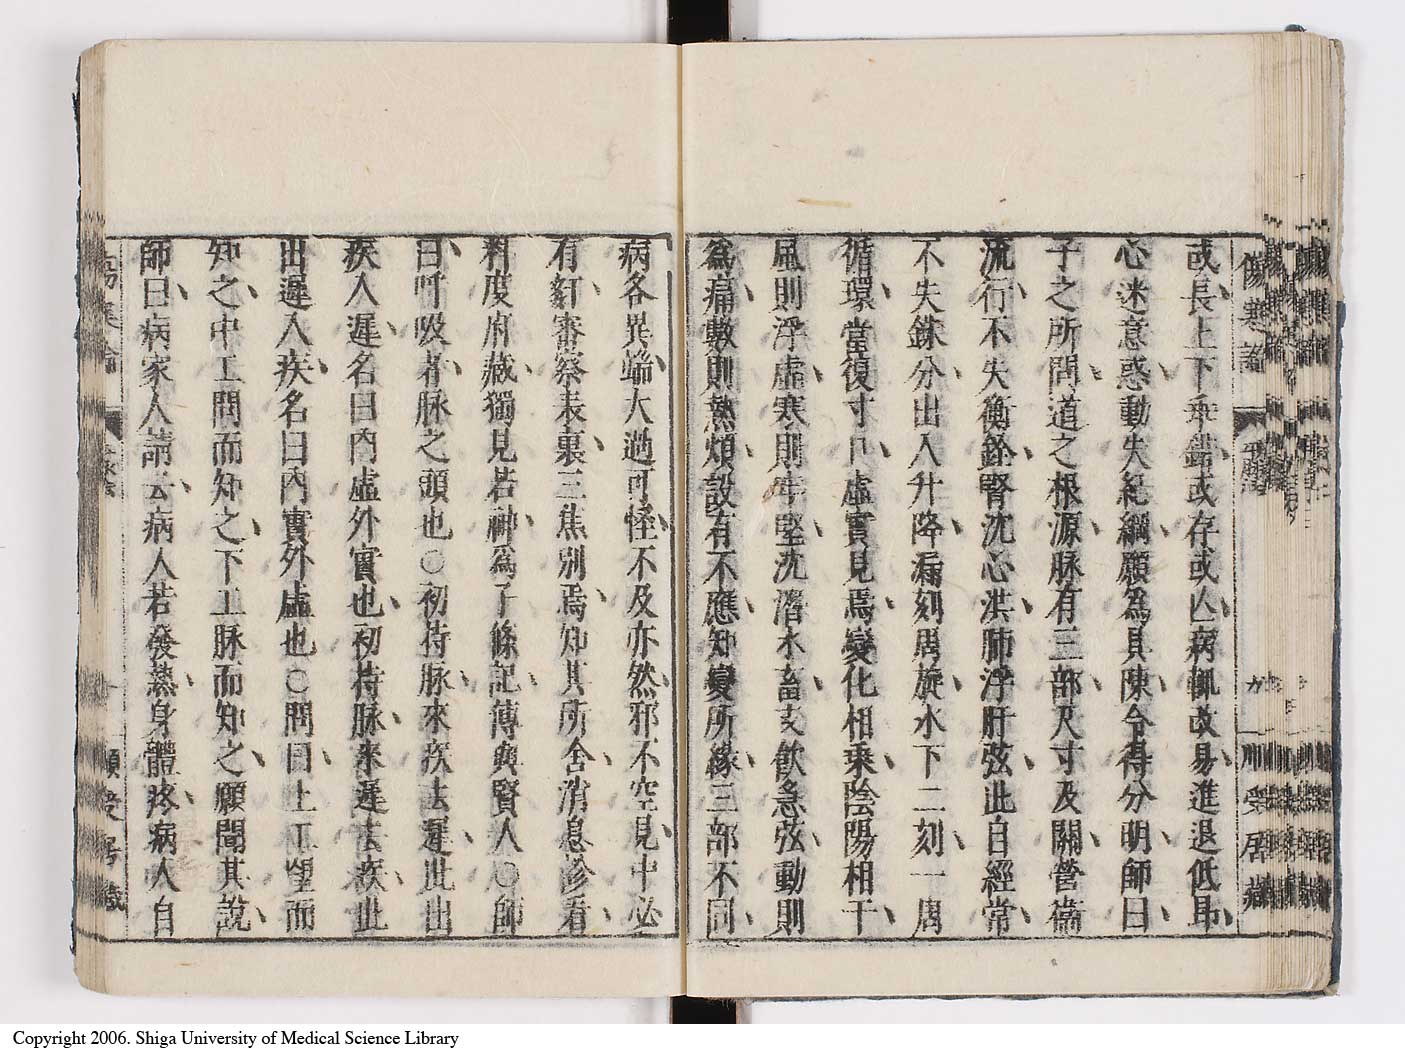 傷寒論 平脉法 九 川 愛居藏
或長上下乖錯或存或亾病輒改易進退低昻
心迷意惑動失紀綱願爲具陳令得分明師曰
子之所問道之根源脉有三部尺寸及關營衞
流行不失衡銓腎沈心洪肺浮肝弦此自經常
不失銖分出入升降漏刻周旋水下二刻一周
循環當復寸口虛實見焉變化相乗陰陽相干
風則浮虛寒則牢堅沈濳水畜支飮急弦動則
爲痛數則熱煩設有不應知變所緣三部不同
病各異端大過可怪不及亦然邪不空見中必
有奸審察表裏三焦別焉知其所舍消息診看
料度府藏獨見若神爲子條記傳與賢人○師
曰吁吸者脉之頭也○初持脉來疾去遲此出
疾入遲名曰內虛外實也初持脉來遲去疾此
出遲入疾名曰內實外虛也○問曰上工望而
知之中工問而知之下工脉而知之願聞其說
師曰病家人請云病人若發熱身體疼病人自
Copyright 2006. Shiga University of Medical Science Library